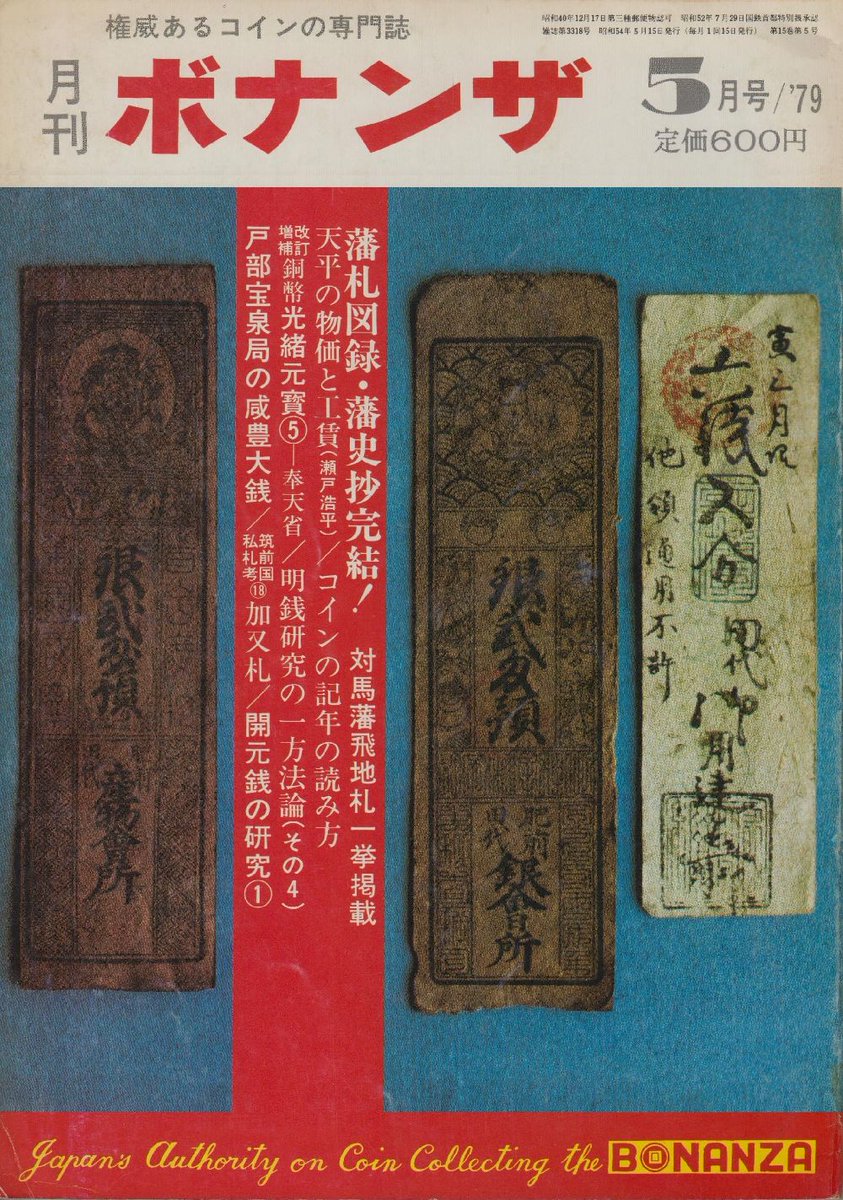 権威あるコインの専門誌
昭和40年12月17日第三種郵便物認可 昭和52年7月29日国鉄首都特別扱承認
雑誌第3318号 昭和54年5月15日発行(毎月1回15日発行) 第15巻第5号
月刊
ボナンザ
5月号/'79
定価600円
藩札図録・藩史抄完結! 対馬藩飛地札一挙掲載
天平の物価と工賃(瀬戸浩平)/コインの記年の読み方
改訂増補銅幣光緒元寳⑤—奉天省/明銭研究の一方法論(その4)
戸部宝泉局の咸豊大銭/筑前国私札考⑱加又札/開元銭の研究①
寅三月改
他領通用不許
田代
御用達
銀弐匁預
肥前
田代
銀會所
銀弐匁預
産物會所
Japan's Authority on Coin Collecting the BONANZA